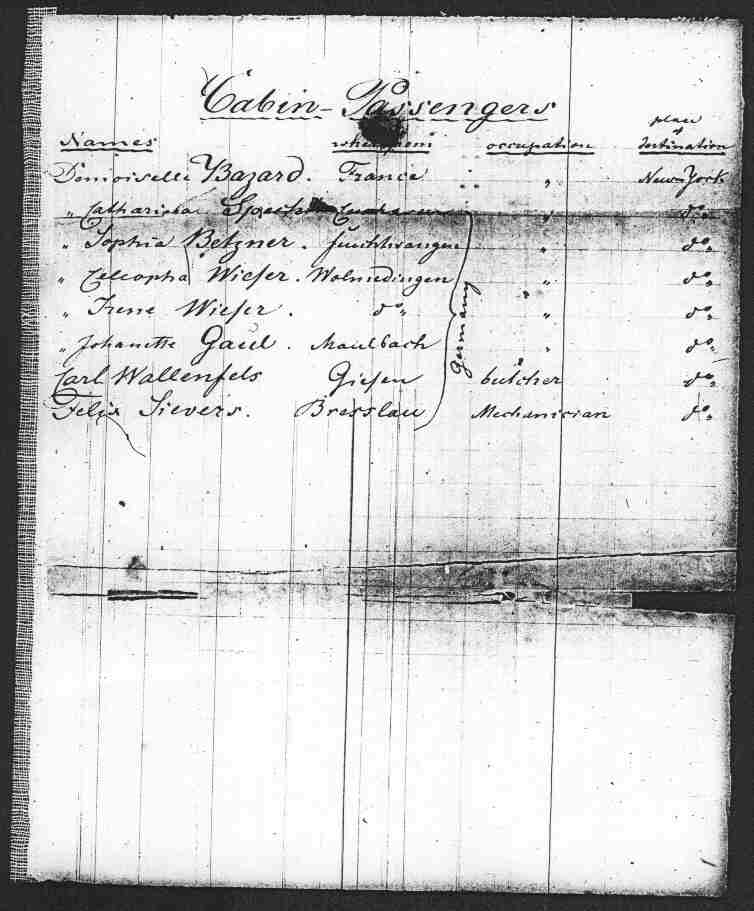 Cabin-Passengers
Names where from occupation place of destination
Demoiselle Bazard. France " New-York
" Catharina do.
" Sophia Betzner. Feuchtwangen " do.
" Cleopha Wieser. Wolmedingen " do.
" Irene Wieser. do. " do.
" Johanette Gaul. Maulbach " do.
Carl Wallenfels Giesen butcher do.
Felix Sievers. Bresslau Mechanician do.
Germany